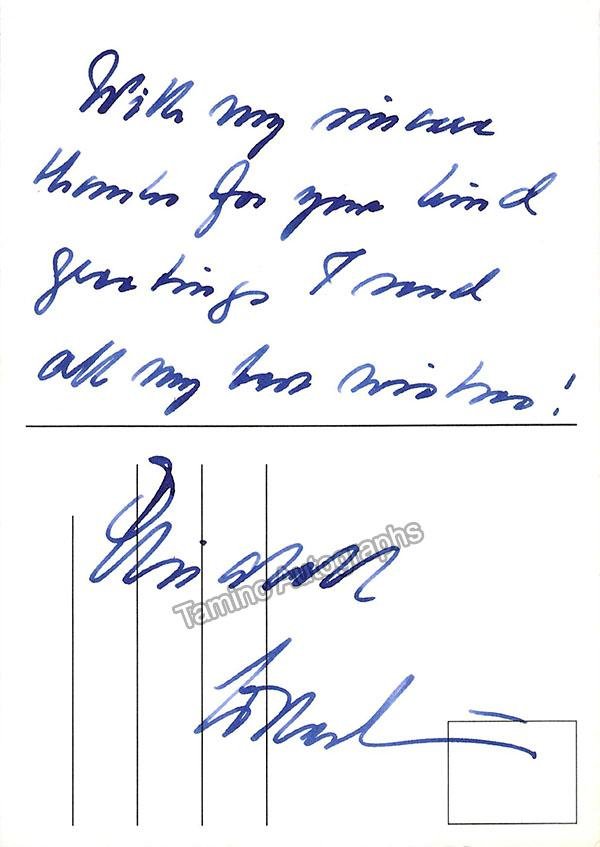 With my sincere
thanks for your kind
greetings I send
all my best wishes!
Tamino Autographs